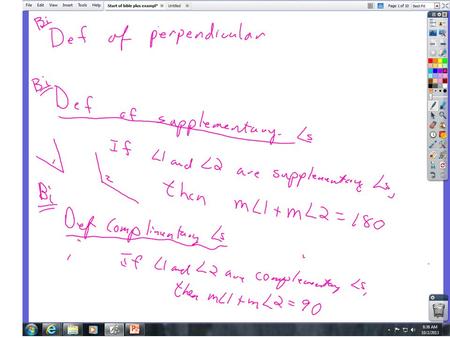 File Edit View Insert Text Tools Help Start of bible plus exampl* Untitled Page 1 of 10 Best Fit
Bi
Def of perpendicular
Bi
Def of supplementary ∠s
If ∠1 and ∠2 are supplementary ∠s,
then m∠1 + m∠2 = 180
1 2
Bi
Def Complimentary ∠s
If ∠1 and ∠2 are complementary ∠s,
then m∠1 + m∠2 = 90
8:36 AM
10/2/2013